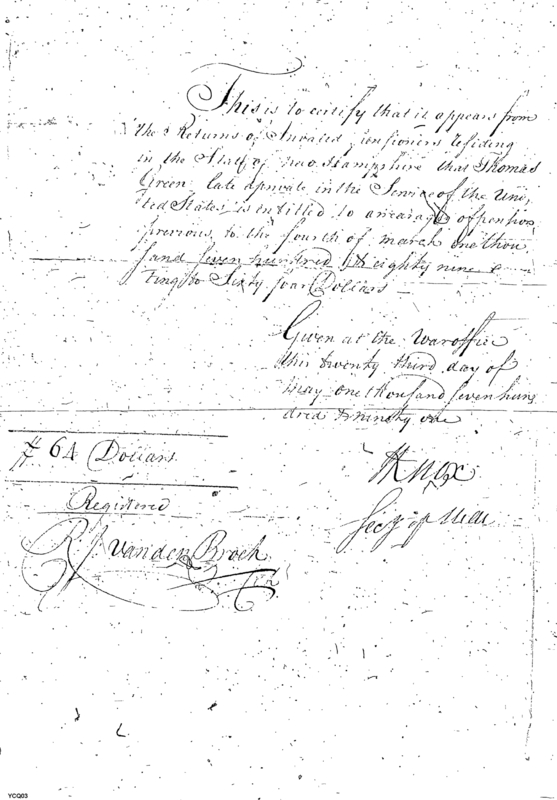 This is to certify that it appears from
the Returns of Invalid pensioners residing
in the State of New Hampshire that Thomas
Green late a private in the Service of the Uni
ted States is entitled to arearages of pention
previous to the fourth of march one thou
sand seven hundred & eighty nine
ting to Sixty four Dollars
Given at the War office
this twenty third day of
may one thousand seven hun
dred & ninety one
64 Dollars
HKnox
Registered
Secy of War
R. J. Vanden Broek
YCQ03